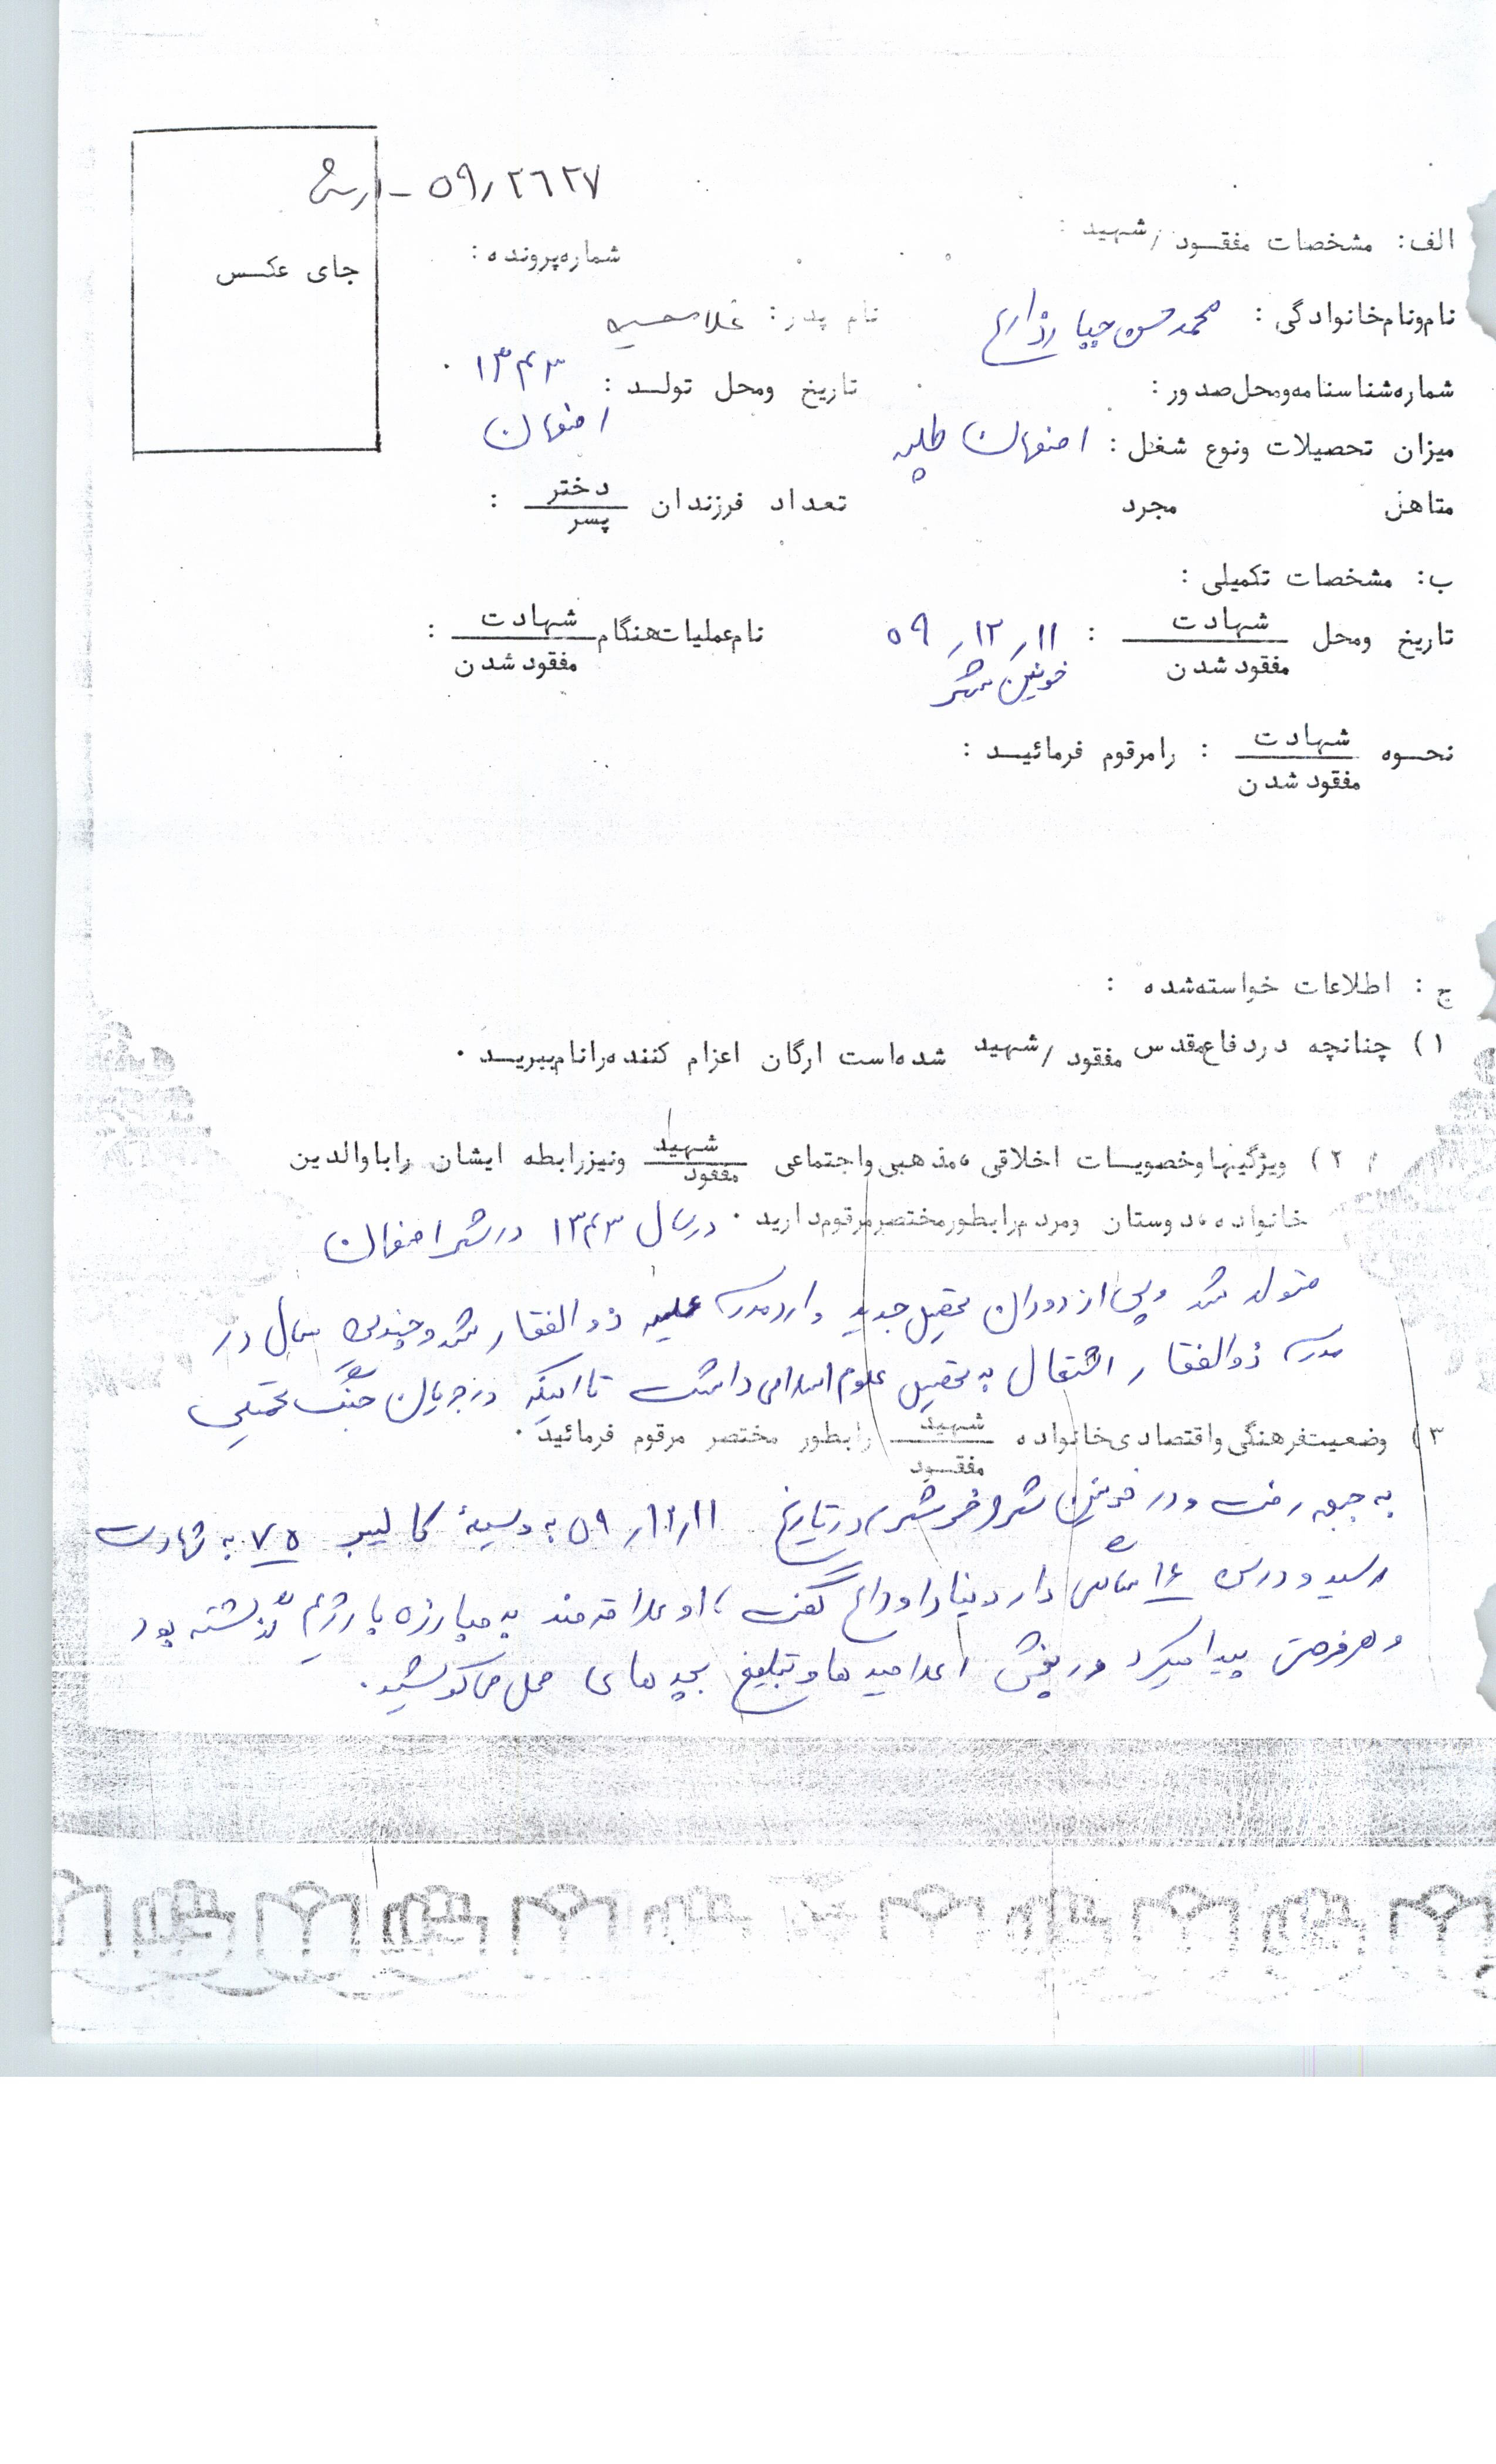 ۵۹/۲۶۲۷ -
الف: مشخصات مفقود / شهید :
شماره پرونده :
جای عکس
نام و نام خانوادگی : محمد حسن
نام پدر : غلامحسین
شماره شناسنامه و محل صدور :
تاریخ و محل تولد : ۱۳۴۳
اصفهان
میزان تحصیلات و نوع شغل : اصفهان طلبه
متاهل مجرد تعداد فرزندان دختر / پسر :
ب: مشخصات تکمیلی :
تاریخ و محل شهادت / مفقود شدن : ۵۹/۱۲/۱۱
خونین شهر
نام عملیات هنگام شهادت / مفقود شدن :
نحوه شهادت / مفقود شدن : را مرقوم فرمائید :
ج : اطلاعات خواسته شده :
۱) چنانچه در دفاع مقدس مفقود / شهید شده است ارگان اعزام کننده را نام ببرید .
۲) ویژگیها و خصویسات اخلاقی ، مذهبی و اجتماعی شهید / مفقود و نیز رابطه ایشان را با والدین
خانواده ، دوستان و مردم را بطور مختصر مرقوم دارید . در سال ۱۳۴۳ در شهر اصفهان
متولد شد و پس از دوران تحصیل جدید وارد مدرسه علمیه ذوالفقار شد و چندین سال در
مدرسه ذوالفقار اشتغال به تحصیل علوم اسلامی داشت تا اینکه در جریان جنگ تحمیلی
۳) وضعیت فرهنگی و اقتصادی خانواده شهید / مفقود را بطور مختصر مرقوم فرمائید .
به جبهه رفت و در خونین شهر (خرمشهر) در تاریخ ۵۹/۱۲/۱۱ به وسیلهٔ کالیبر ۷۵ به شهادت
رسید و در سن ۱۶ سالگی دار دنیا را وداع گفت ، او علاقه مند به مبارزه با رژیم گذشته بود
و هر فرصتی پیدا میکرد در پخش اعلامیه ها و تبلیغ بچه های محل می کوشید .